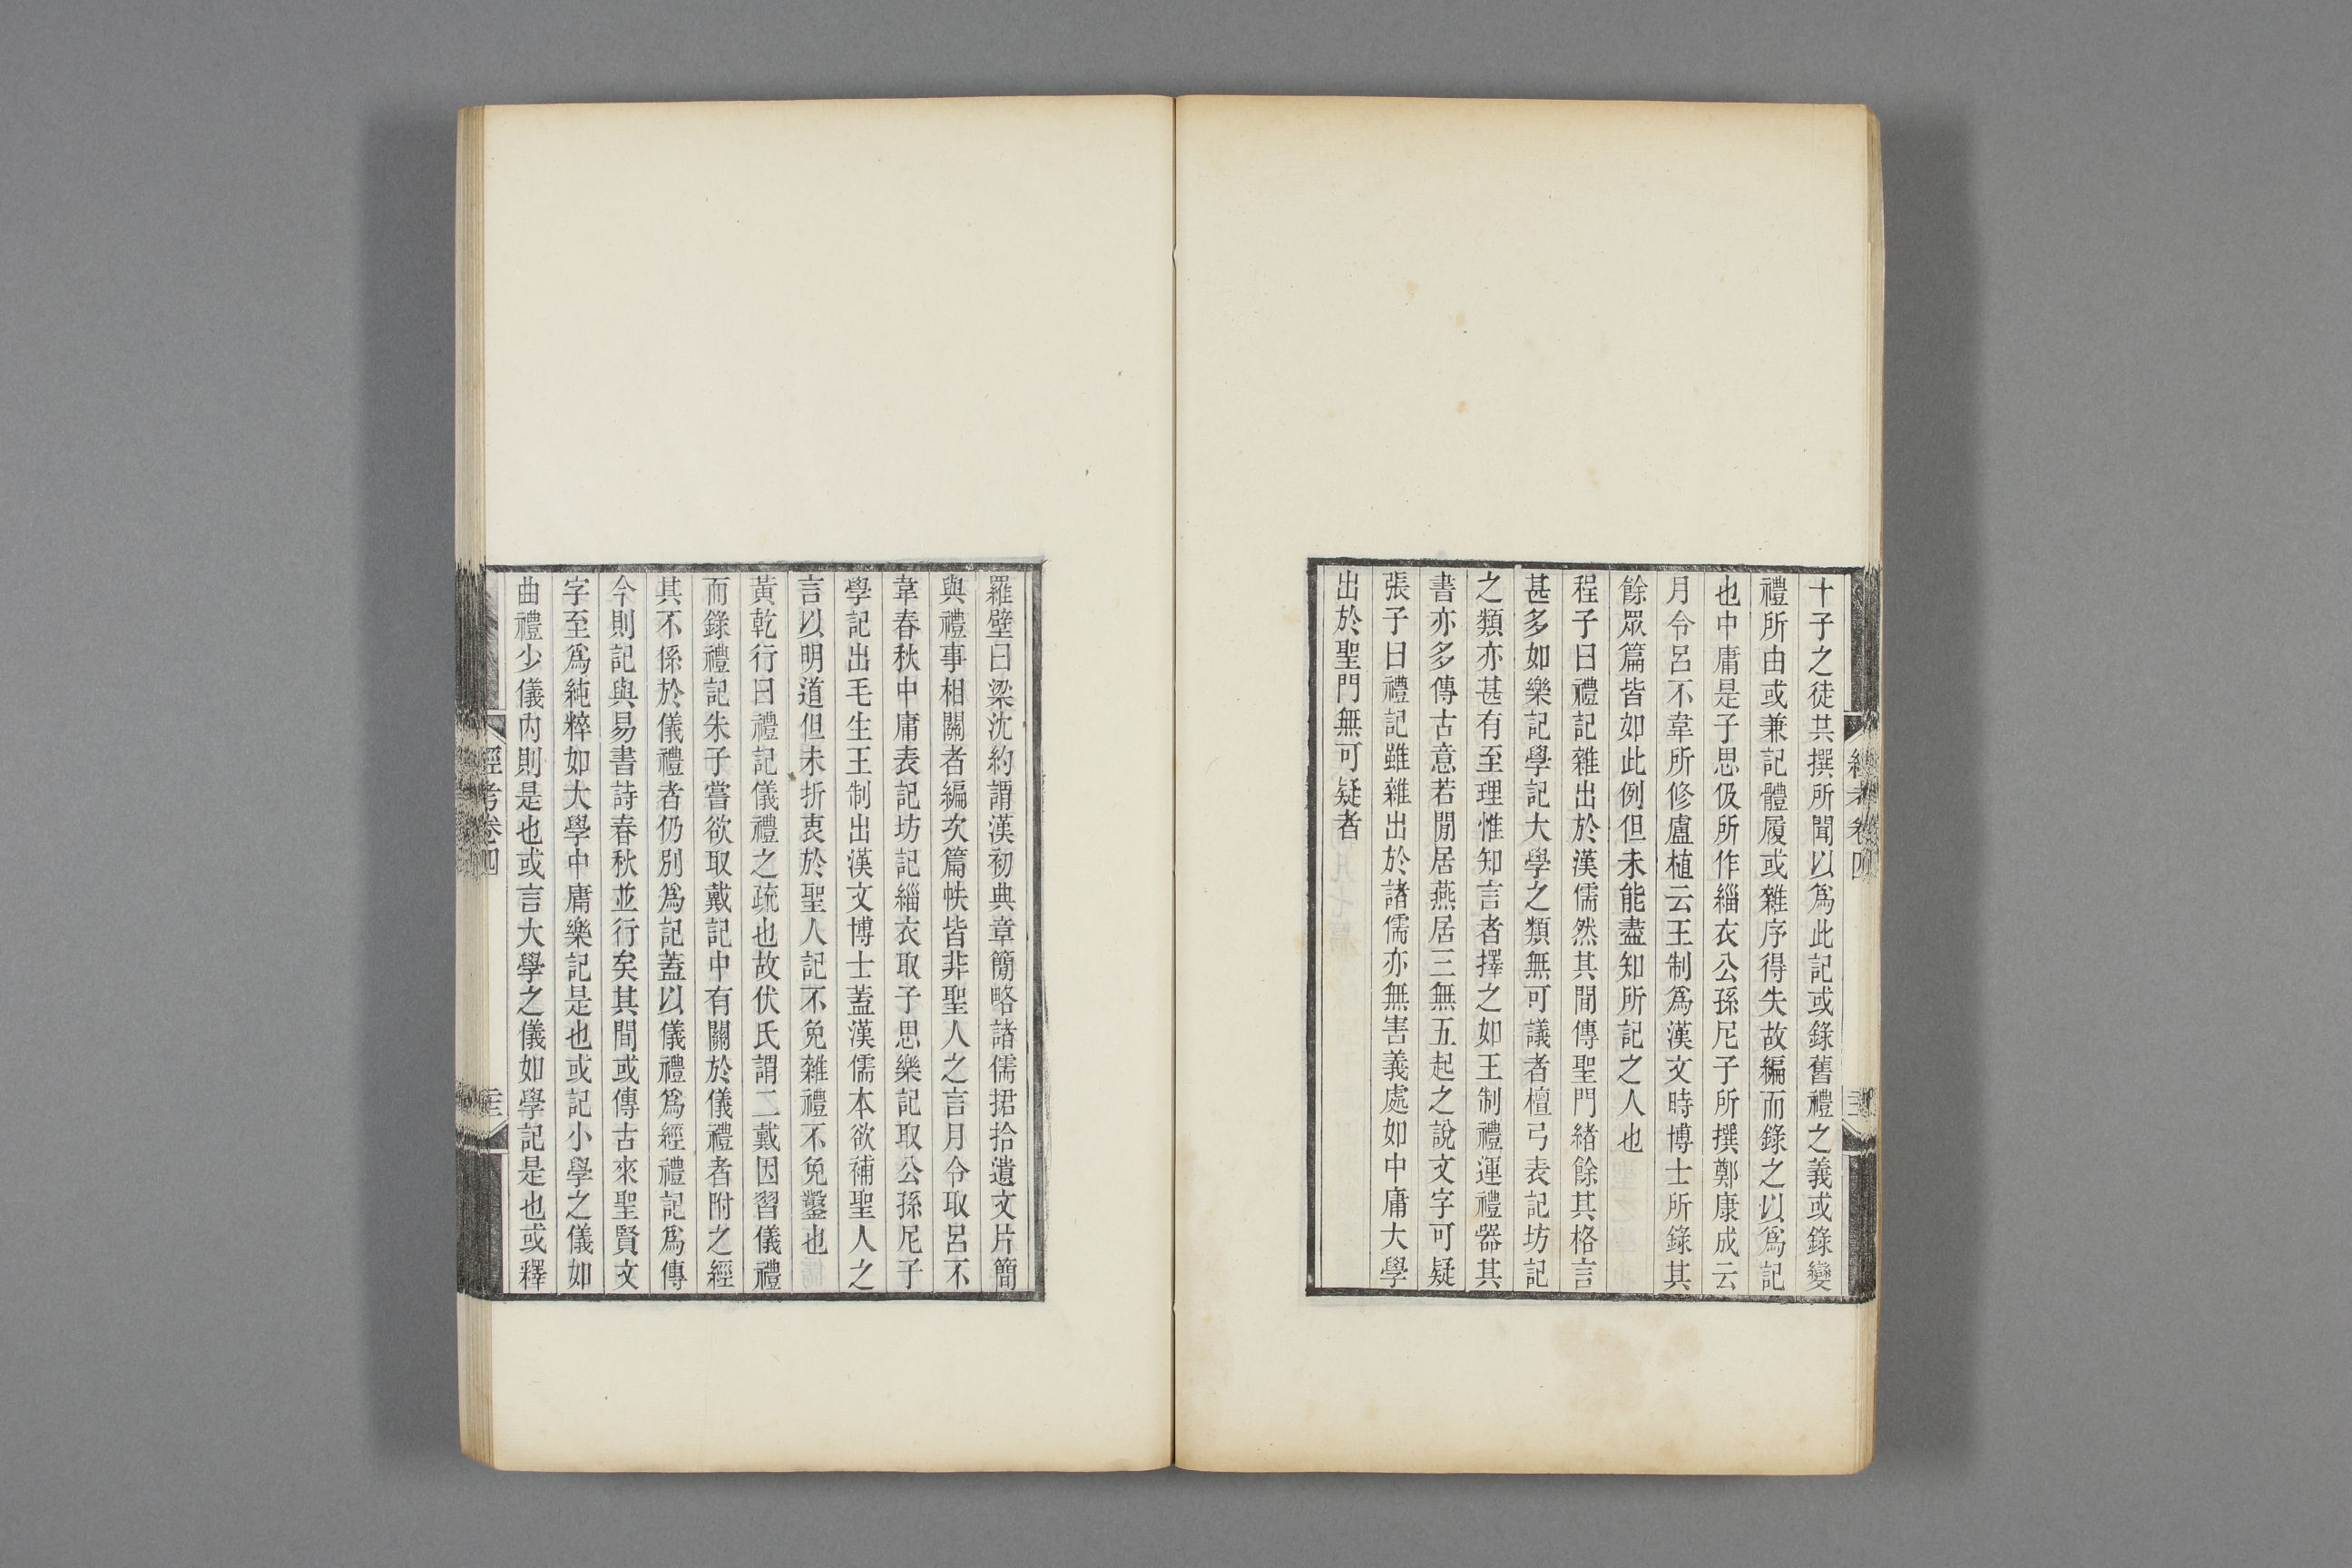 十子之徒共撰所聞以爲此記或錄舊禮之義或錄變
禮所由或兼記體履或雜序得失故編而錄之以爲記
也中庸是子思伋所作緇衣公孫尼子所撰鄭康成云
月令呂不韋所修盧植云王制爲漢文時博士所錄其
餘眾篇皆如此例但未能盡知所記之人也
程子曰禮記雜出於漢儒然其閒傳聖門緒餘其格言
甚多如樂記學記大學之類無可議者檀弓表記坊記
之類亦甚有至理惟知言者擇之如王制禮運禮器其
書亦多傳古意若閒居燕居三無五起之說文字可疑
張子曰禮記雖雜出於諸儒亦無害義處如中庸大學
出於聖門無可疑者
羅璧曰梁沈約謂漢初典章簡略諸儒捃拾遺文片簡
與禮事相關者編次篇帙皆非聖人之言月令取呂不
韋春秋中庸表記坊記緇衣取子思樂記取公孫尼子
學記出毛生王制出漢文博士蓋漢儒本欲補聖人之
言以明道但未折衷於聖人記不免雜禮不免鑿也
黃乾行曰禮記儀禮之疏也故伏氏謂二戴因習儀禮
而錄禮記朱子嘗欲取戴記中有關於儀禮者附之經
其不係於儀禮者仍別爲記蓋以儀禮爲經禮記爲傳
今則記與易書詩春秋並行矣其間或傳古來聖賢文
字至爲純粹如大學中庸樂記是也或記小學之儀如
曲禮少儀內則是也或言大學之儀如學記是也或釋
經考卷四